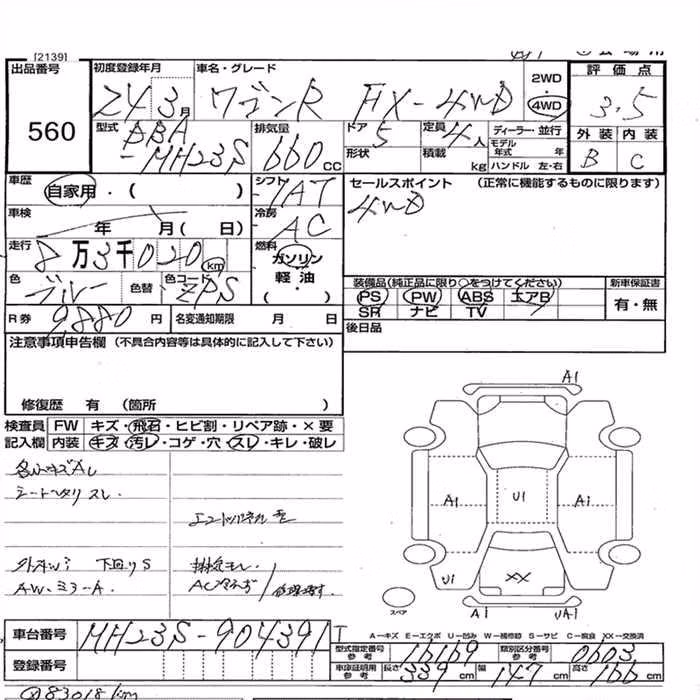 [2139]
出品番号 初度登録年月 車名・グレード 2WD 評価点
560 24 3月 ワゴンR FX-4WD 4WD 3.5
型式 排気量 ドア 定員 ディーラー・並行 外装 内装
BBA-MH23S 660cc 5 4人 モデル年式 年 B C
形状 積載 kg ハンドル 左・右
車歴 自家用・( ) シフト 7AT セールスポイント (正常に機能するものに限ります)
車検 年 月( 日) 冷房 AC 4WD
走行 8万3千020km 燃料 ガソリン 軽・油 ・( )
色 ブルー 色替 色コード ZPS 装備品(純正品に限り○をつけてください) 新車保証書
PS PW ABS エアB 有・無
SR ナビ TV
R券 9,880円 名変通知期限 月 日 後日品
注意事項申告欄 (不具合内容等は具体的に記入して下さい)
修復歴 有 (箇所 )
検査員 FW キズ・飛石・ヒビ割・リペア跡・×要
記入欄 内装 キズ・汚レ・コゲ・穴・スレ・キレ・破レ
シートヘタリ スレ.
下回りS
AW.ミラーA
A1
A1 U1 A1
U1 XX
A1 UA1
スペア
A-キズ E-エクボ U-凹み W-補修跡 S-サビ C-腐食 XX-交換済
車台番号 MH23S-904391 型式指定番号 参考 16169 類別区分番号 参考 0603
登録番号 車庫証明用 参考 長さ 339cm 幅 147cm 高さ 166cm
83018km